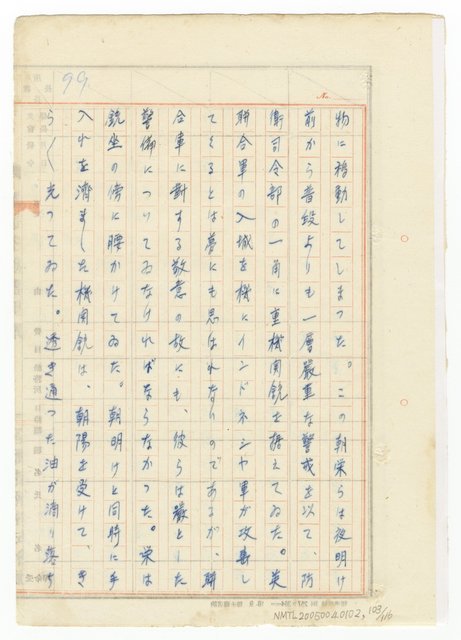 99.
No.
物に移動してしまった。この朝栄らは夜明け
前から普段よりも一層厳重な警戒を以て、防
衛司令部の一角に重機関銃を据えてゐた。英
聯合軍の入城を機にインドネシヤ軍が攻勢し
てくるとは夢にも思はれないのであるが、聯
合軍に対する敬意の故にも、彼らは厳とした
警備についてゐなければならなかった。栄は
銃坐の傍に腰かけてゐた。朝明けと同時に手
入れを済ました機関銃は、朝陽を受けて、き
らく光ってゐた。透き通った油が滴り落ち
NMTL20050040102, 108/116